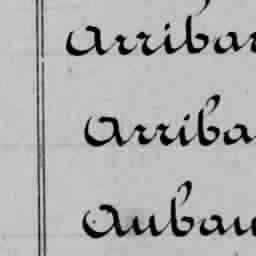 Arribar
Arriba
Aubau